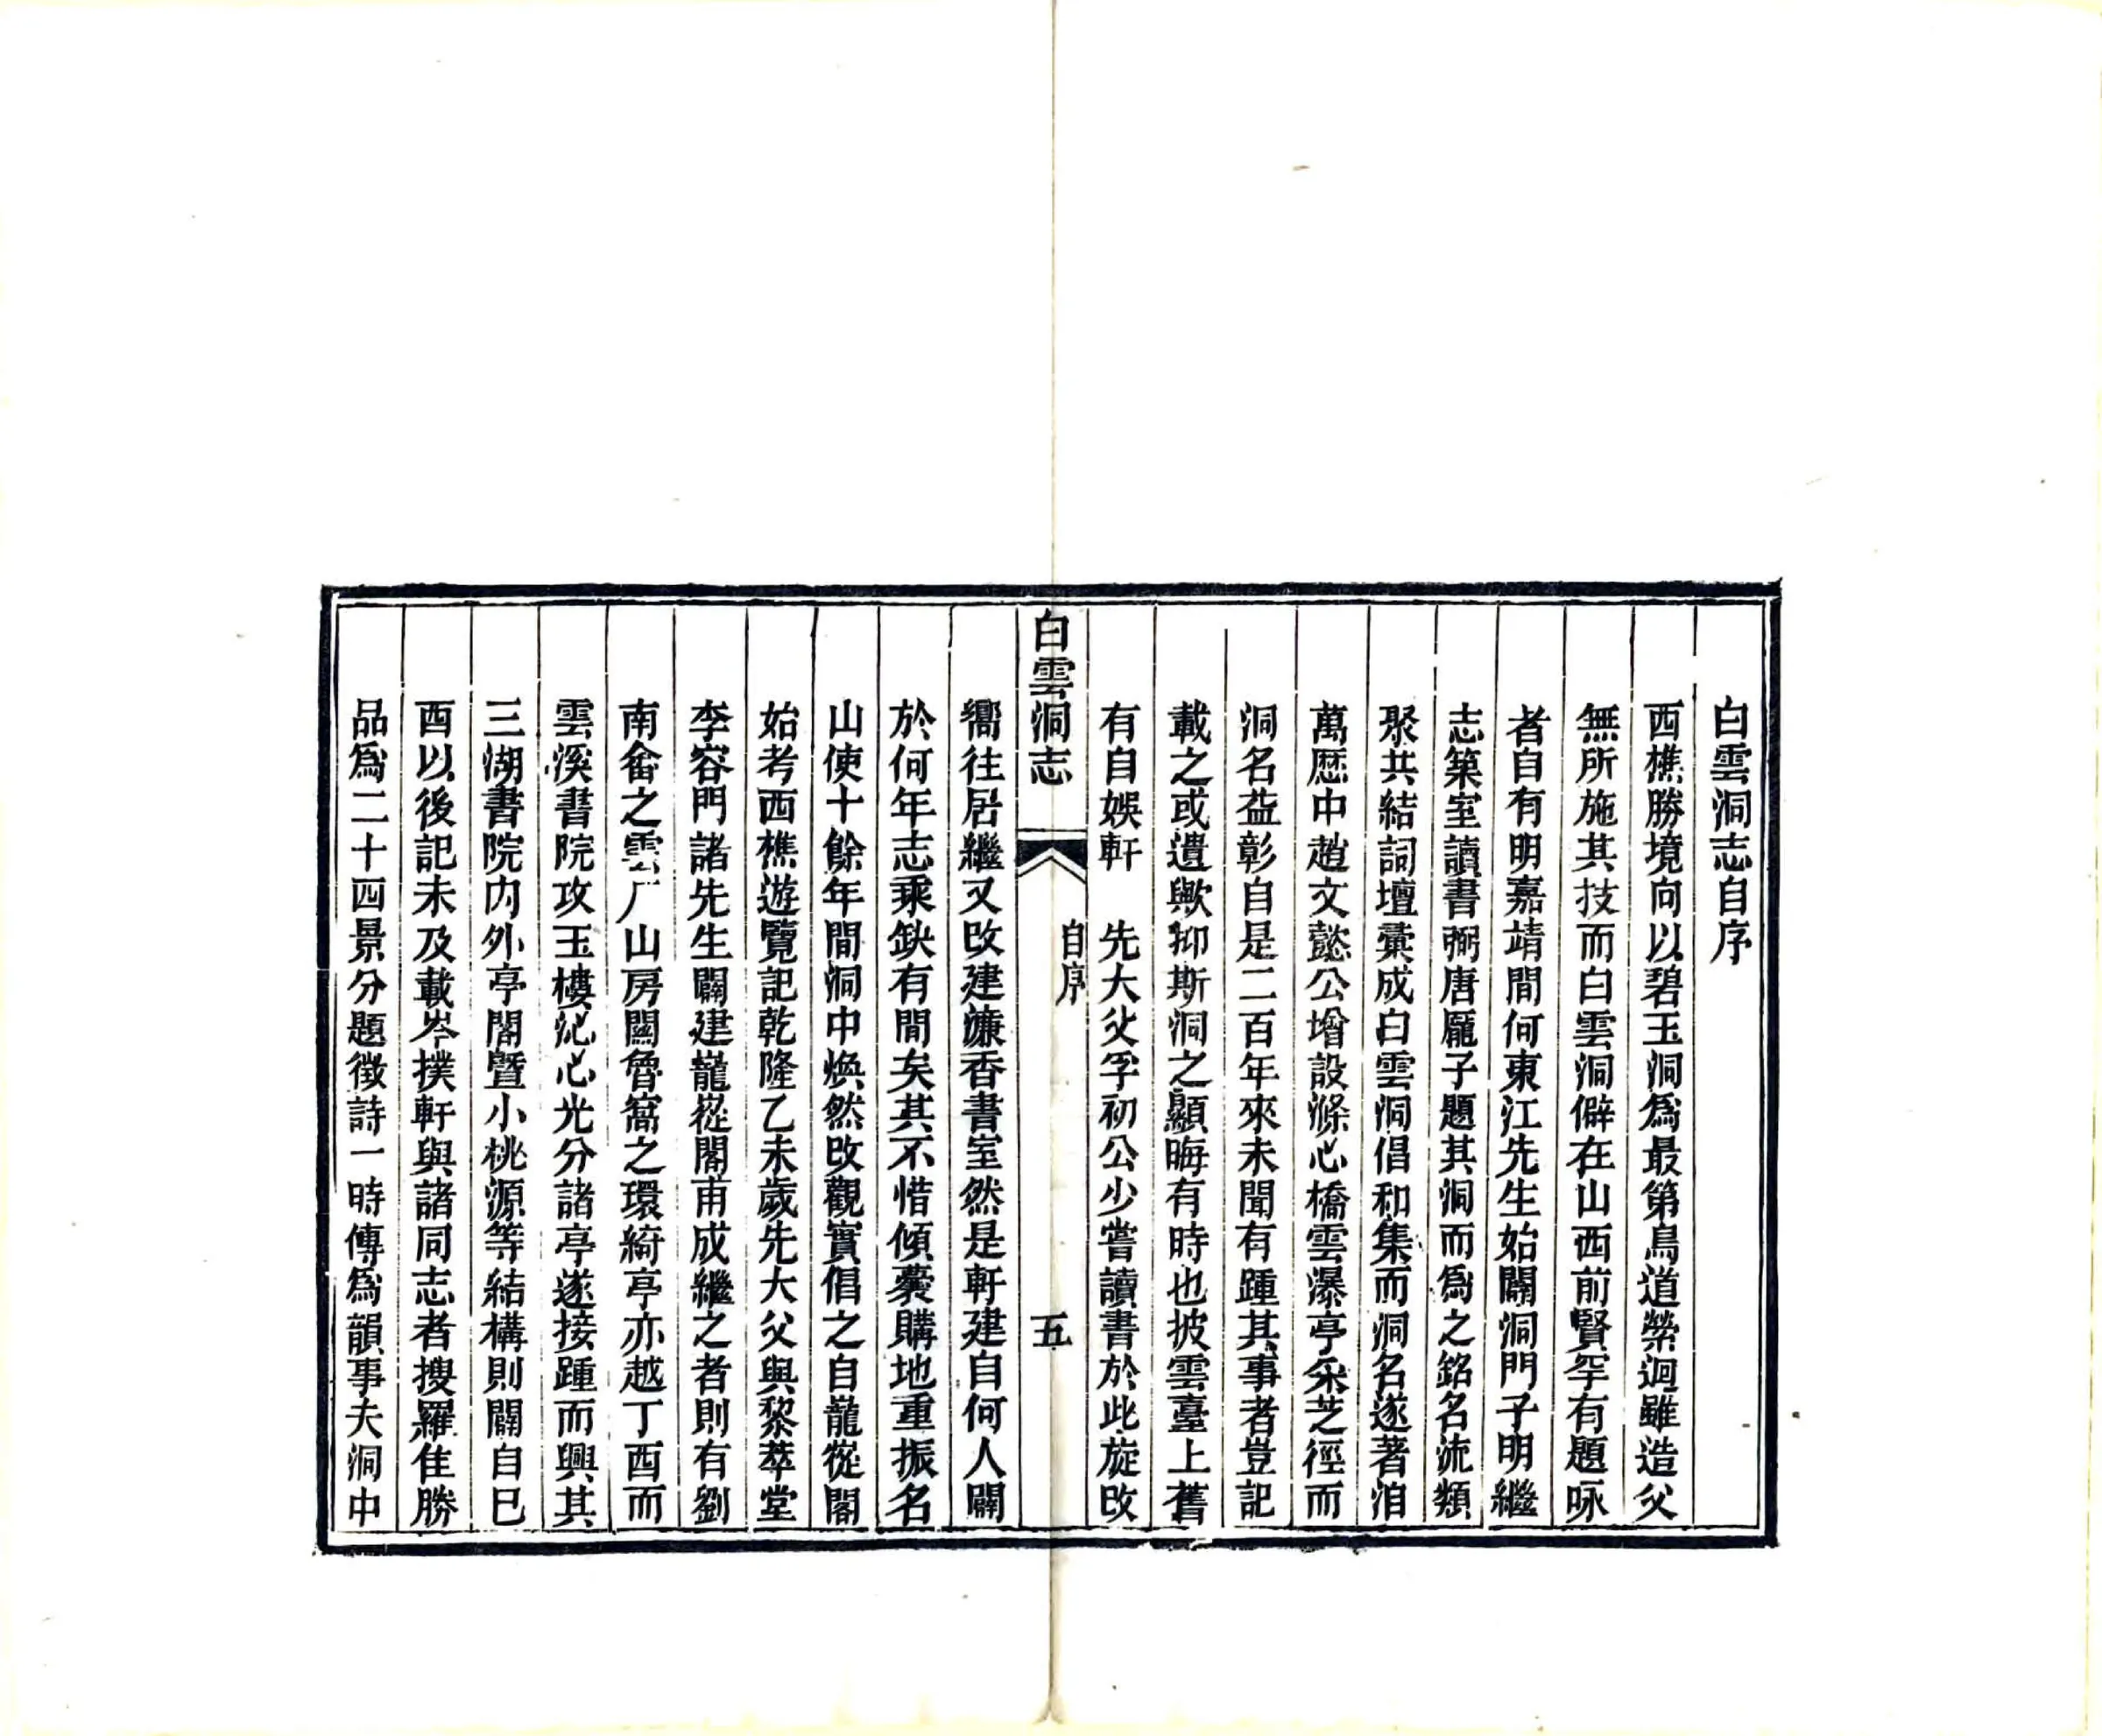 白雲洞志自序
西樵勝境向以碧玉洞爲最第鳥道縈迴雖造父
無所施其技而白雲洞僻在山西前賢罕有題咏
者自有明嘉靖間何東江先生始闢洞門子明繼
志築室讀書弼唐龐子題其洞而爲之銘名流類
聚共結詞壇彚成白雲洞倡和集而洞名遂著洎
萬厯中趙文懿公增設滌心橋雲瀑亭采芝徑而
洞名益彰自是二百年來未聞有踵其事者豈記
載之或遺歟抑斯洞之顯晦有時也披雲臺上舊
有自娛軒　先大父孚初公少嘗讀書於此旋改
白雲洞志　自序　五
嚮往居繼又改建濂香書室然是軒建自何人闢
於何年志乘缺有間矣其不惜傾囊購地重振名
山使十餘年間洞中煥然改觀實倡之自巃嵸閣
始考西樵遊覽記乾隆乙未歲先大父與黎萃堂
李容門諸先生闢建巃嵸閣甫成繼之者則有劉
南畬之雲厂山房關魯窩之環綺亭亦越丁酉而
雲溪書院攻玉樓沁心光分諸亭遂接踵而興其
三湖書院內外亭閣暨小桃源等結構則闢自巳
酉以後記未及載岑撲軒與諸同志者搜羅佳勝
品爲二十四景分題徵詩一時傳爲韻事夫洞中